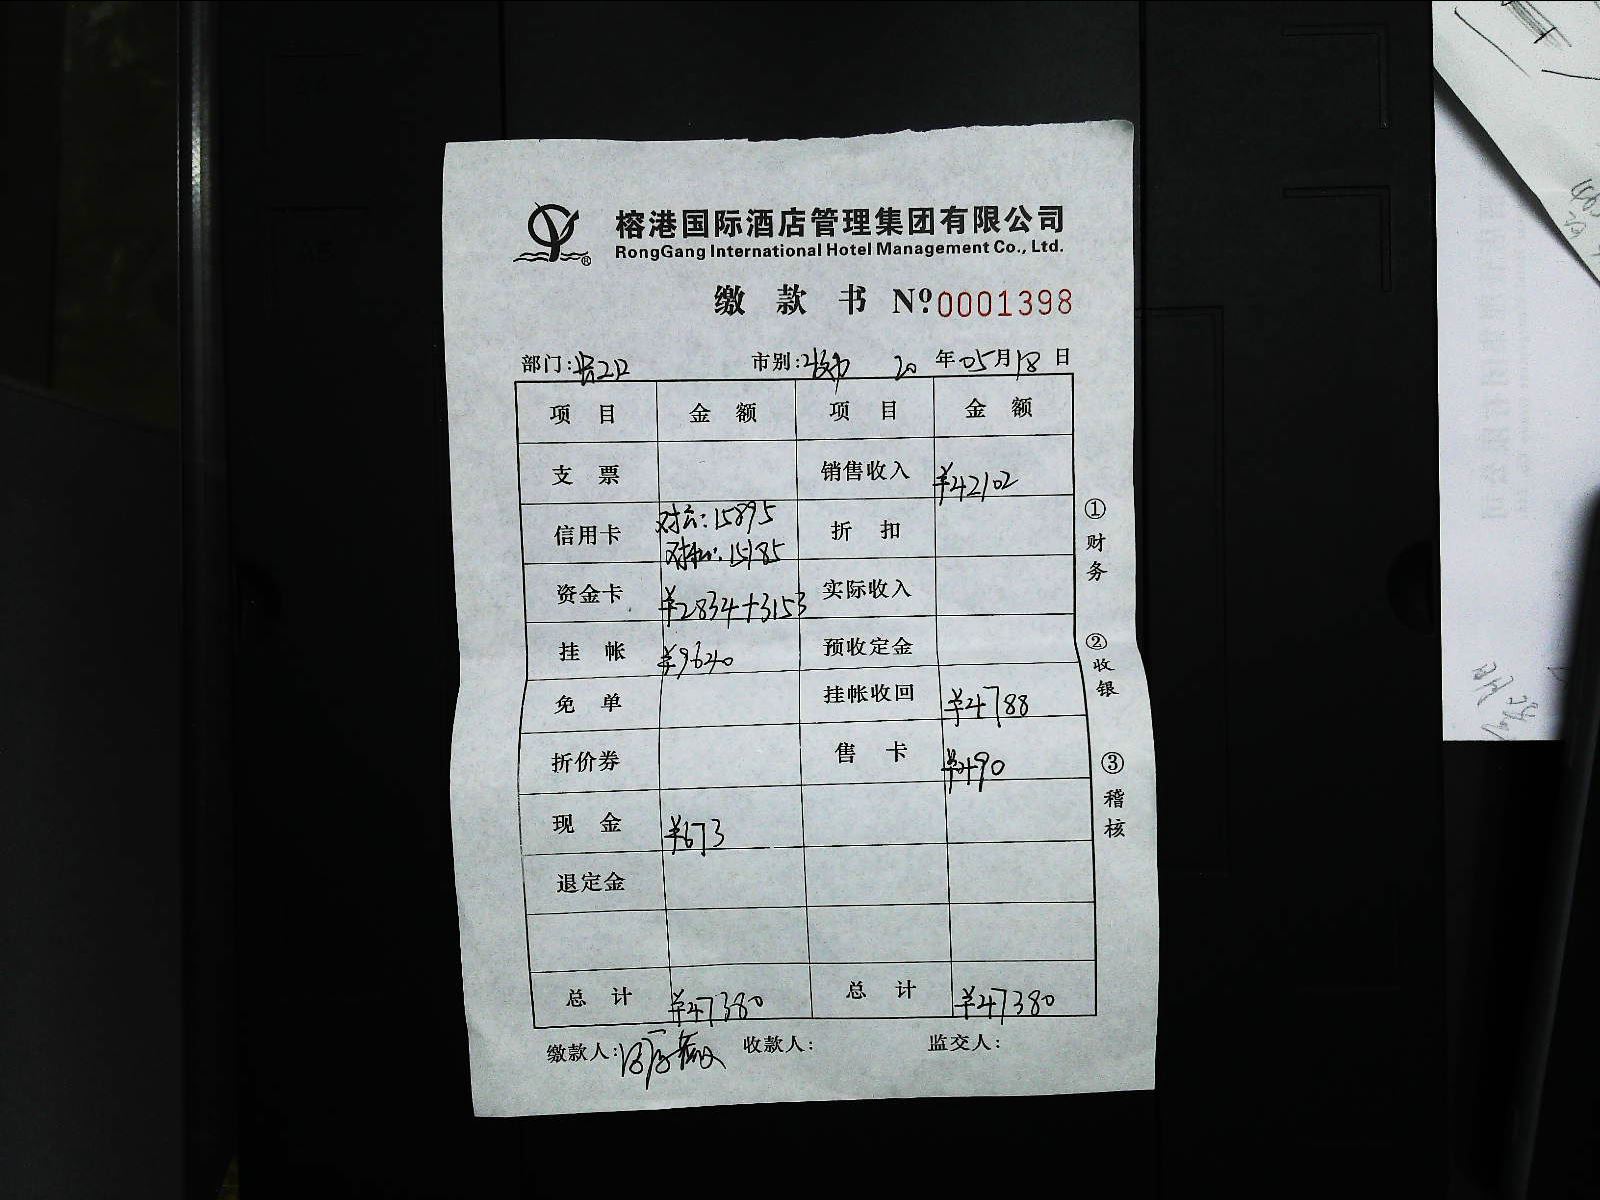 榕港国际酒店管理集团有限公司
RongGang International Hotel Management Co., Ltd.
缴 款 书 Nº.0001398
部门: 市别: 20 年 05 月 18 日
项 目 金 额 项 目 金 额
支 票 销售收入 ¥42102
信用卡 对公:15895 折 扣
对私:15185
资金卡 ¥2834+3153 实际收入
挂 帐 ¥9640 预收定金
免 单 挂帐收回 ¥4788
折价券 售 卡 ¥490
现 金 ¥673
退定金
总 计 ¥47380 总 计 ¥47380
缴款人: 收款人: 监交人:
①财务
②收银
③稽核